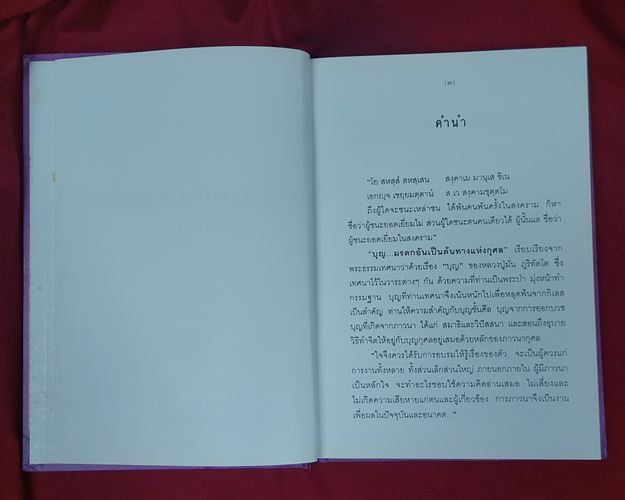 (๓)
คำนำ
"โย สหสฺสํ สหสฺเสน สงฺคาเม มานุเส ชิเน
เอกญฺจ เชยฺยมตฺตานํ ส เว สงฺคามชุตฺตโม
ถึงผู้ใดจะชนะเหล่าชน ได้พันคนพันครั้งในสงคราม ก็หา
ชื่อว่าผู้ชนะยอดเยี่ยมไม่ ส่วนผู้ใดชนะตนคนเดียวได้ ผู้นั้นแล ชื่อว่า
ผู้ชนะยอดเยี่ยมในสงคราม"
"บุญ...มรดกอันเป็นต้นทางแห่งกุศล" เรียบเรียงจาก
พระธรรมเทศนาว่าด้วยเรื่อง "บุญ" ของหลวงปู่มั่น ภูริทัตโต ซึ่ง
เทศนาไว้ในวาระต่างๆ กัน ด้วยความที่ท่านเป็นพระป่า มุ่งหน้าทำ
กรรมฐาน บุญที่ท่านเทศนาจึงเน้นหนักไปเพื่อหลุดพ้นจากกิเลส
เป็นสำคัญ ท่านให้ความสำคัญกับบุญขั้นศีล บุญจากการออกบวช
บุญที่เกิดจากภาวนา ได้แก่ สมาธิและวิปัสสนา และสอนถึงอุบาย
วิธีทำจิตให้อยู่กับบุญกุศลอยู่เสมอด้วยหลักของภาวนากุศล
"ใจจึงควรได้รับการอบรมให้รู้เรื่องของตัว จะเป็นผู้ควรแก่
การงานทั้งหลาย ทั้งส่วนเล็กส่วนใหญ่ ภายนอกภายใน ผู้มีภาวนา
เป็นหลักใจ จะทำอะไรชอบใช้ความคิดอ่านเสมอ ไม่เสี่ยงและ
ไม่เกิดความเสียหายแก่ตนและผู้เกี่ยวข้อง การภาวนาจึงเป็นงาน
เพื่อผลในปัจจุบันและอนาคต..."